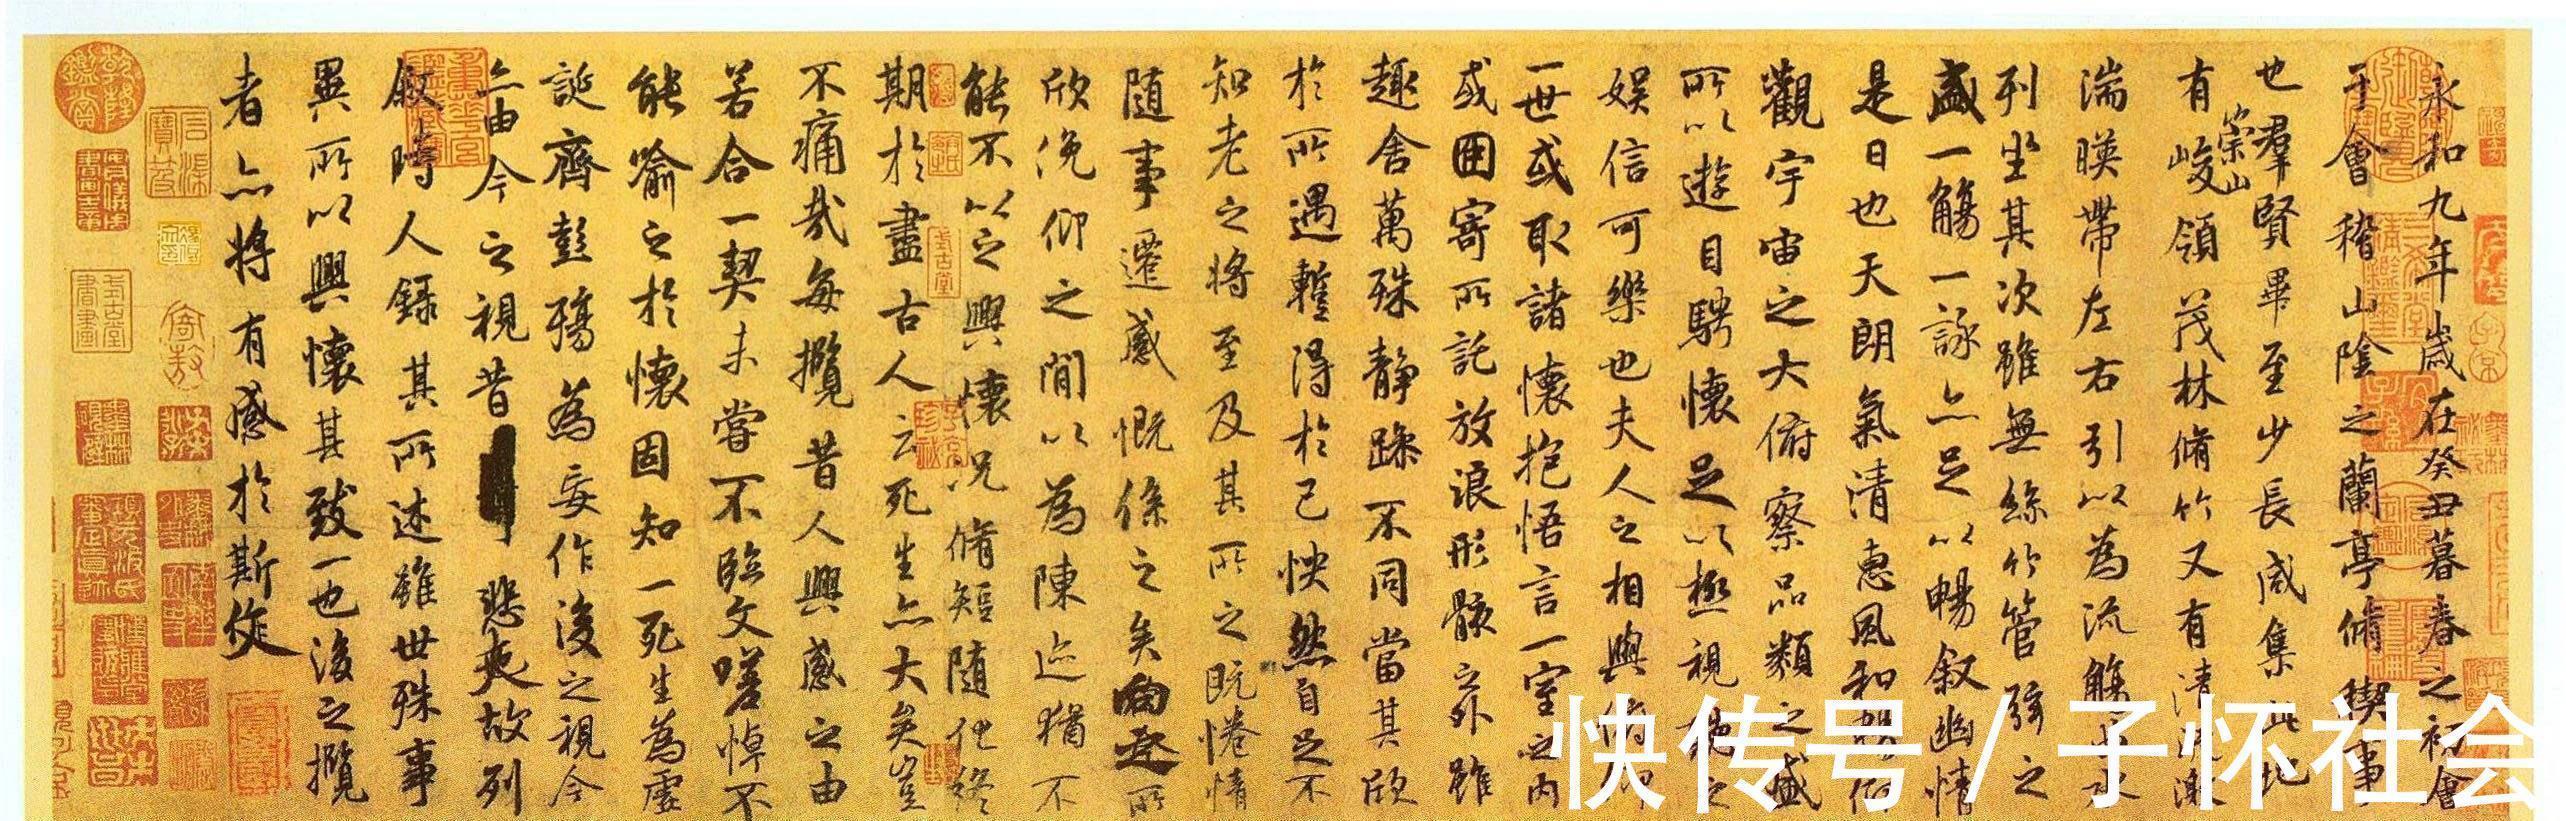 永和九年歲在癸丑暮春之初會
于會稽山陰之蘭亭脩稧事
也羣賢畢至少長咸集此地
有崇山峻領茂林脩竹又有清流激
湍暎帶左右引以為流觴曲水
列坐其次雖無絲竹管弦之
盛一觴一詠亦足以暢敘幽情
是日也天朗氣清惠風和暢仰
觀宇宙之大俯察品類之盛
所以遊目騁懷足以極視聽之
娛信可樂也夫人之相與俯仰
一世或取諸懷抱悟言一室之內
或因寄所託放浪形骸之外雖
趣舍萬殊靜躁不同當其欣
於所遇蹔得於己怏然自足不
知老之將至及其所之既惓情
隨事遷感慨係之矣向之所
欣俛仰之閒以為陳迹猶不
能不以之興懷況脩短隨化終
期於盡古人云死生亦大矣豈
不痛哉每攬昔人興感之由
若合一契未嘗不臨文嗟悼不
能喻之於懷固知一死生為虛
誕齊彭殤為妄作後之視今
亦由今之視昔悲夫故列
敘時人錄其所述雖世殊事
異所以興懷其致一也後之攬
者亦將有感於斯文
快传号/子怀社会